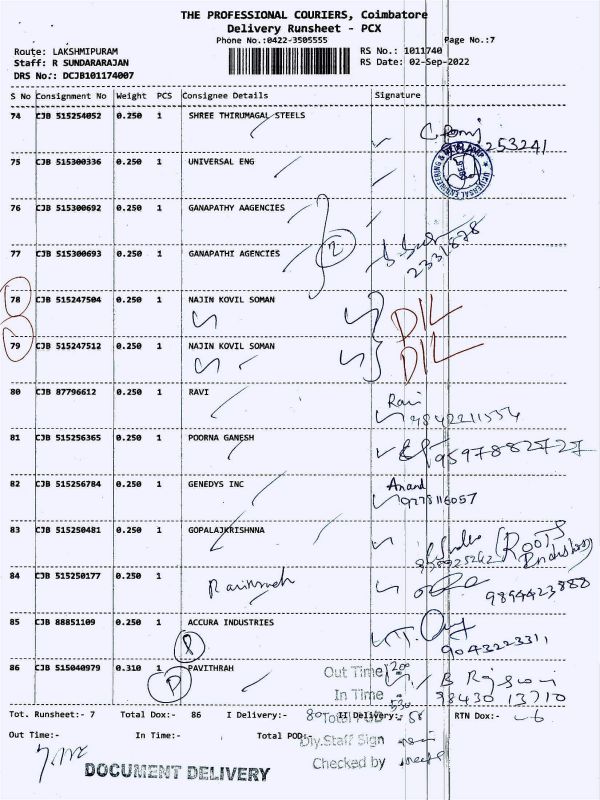 THE PROFESSIONAL COURIERS, Coimbatore
Delivery Runsheet - PCX
Phone No.:0422-3505555 Page No.:7
Route: LAKSHMIPURAM RS No.: 1011740
Staff: R SUNDARARAJAN RS Date: 02-Sep-2022
DRS No.: DCJB101174007
S No Consignment No Weight PCS Consignee Details Signature
74 CJB 515254052 0.250 1 SHREE THIRUMAGAL STEELS
253241
75 CJB 515300336 0.250 1 UNIVERSAL ENG
76 CJB 515300692 0.250 1 GANAPATHY AAGENCIES
2
77 CJB 515300693 0.250 1 GANAPATHI AGENCIES
2331878
78 CJB 515247504 0.250 1 NAJIN KOVIL SOMAN
DIL
79 CJB 515247512 0.250 1 NAJIN KOVIL SOMAN
DIL
80 CJB 87796612 0.250 1 RAVI
Ravi
81 CJB 515256365 0.250 1 POORNA GANESH
9597882727
82 CJB 515256784 0.250 1 GENEDYS INC
Anand
9278116057
83 CJB 515250481 0.250 1 GOPALAJKRISHNNA
(Roots
84 CJB 515250177 0.250 1
9894423888
85 CJB 88851109 0.250 1 ACCURA INDUSTRIES
9043223311
86 CJB 515040979 0.310 1 PAVITHRAH
P
Out Time
In Time
98430 13710
Tot. Runsheet:- 7 Total Dox:- 86 I Delivery:- 80 II Delivery:- RTN Dox:- 6
Out Time:- In Time:- Total POD:-
Dly.Staff Sign
Checked by
DOCUMENT DELIVERY